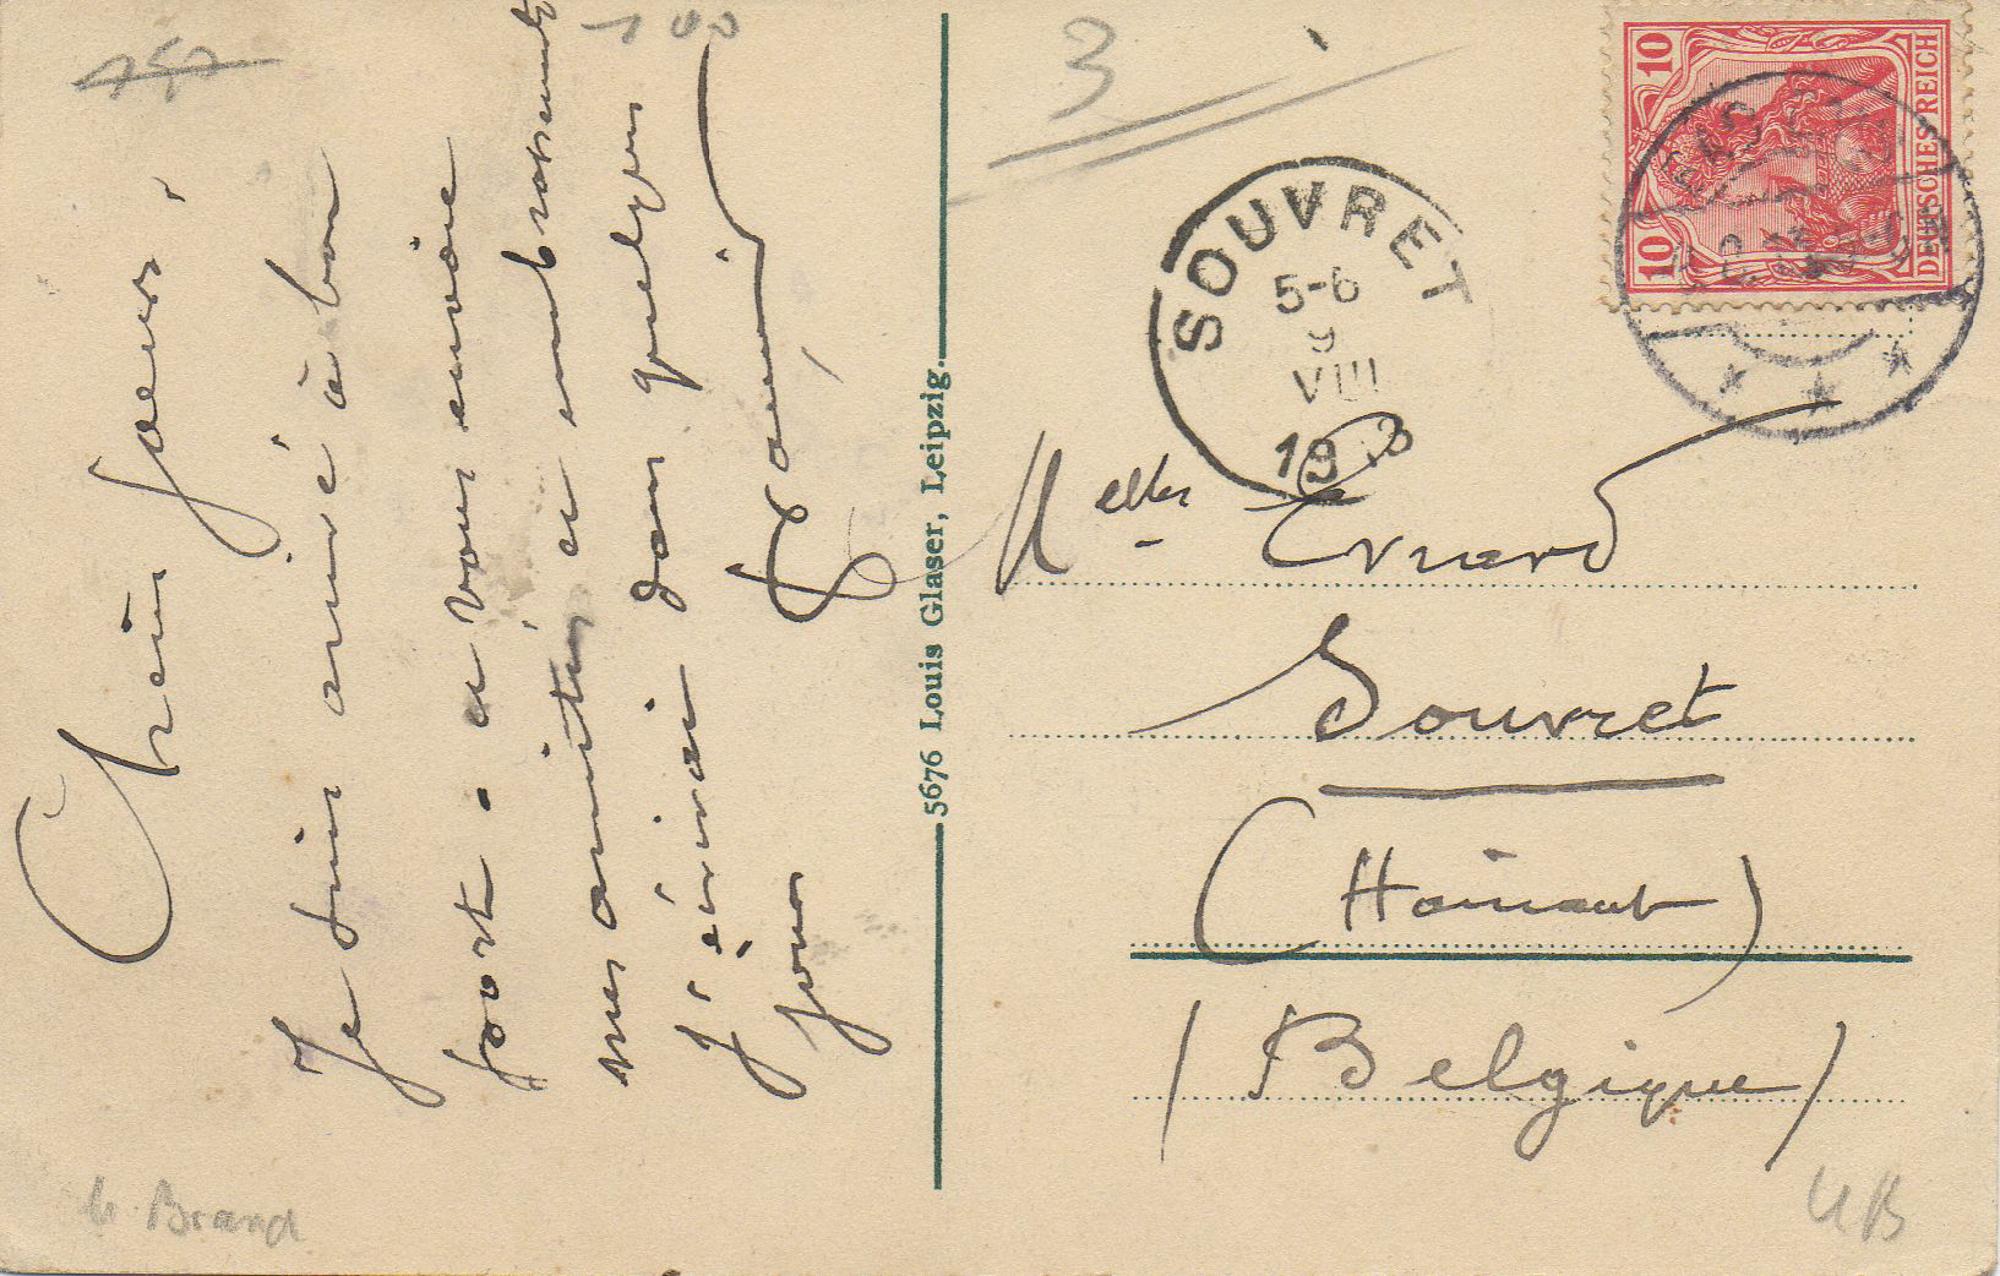 Chères soeurs,
Je suis arrivé à bon
port - et vous envoie
mes amitiés et embrassements
J'écrirai dans quelques
jours
5676 Louis Glaser, Leipzig.
3
10 10
DEUTSCHES REICH
SOUVRET
5-6
9
VIII
1913
Melles Evrard
Souvret
(Hainaut)
(Belgique)
Brand